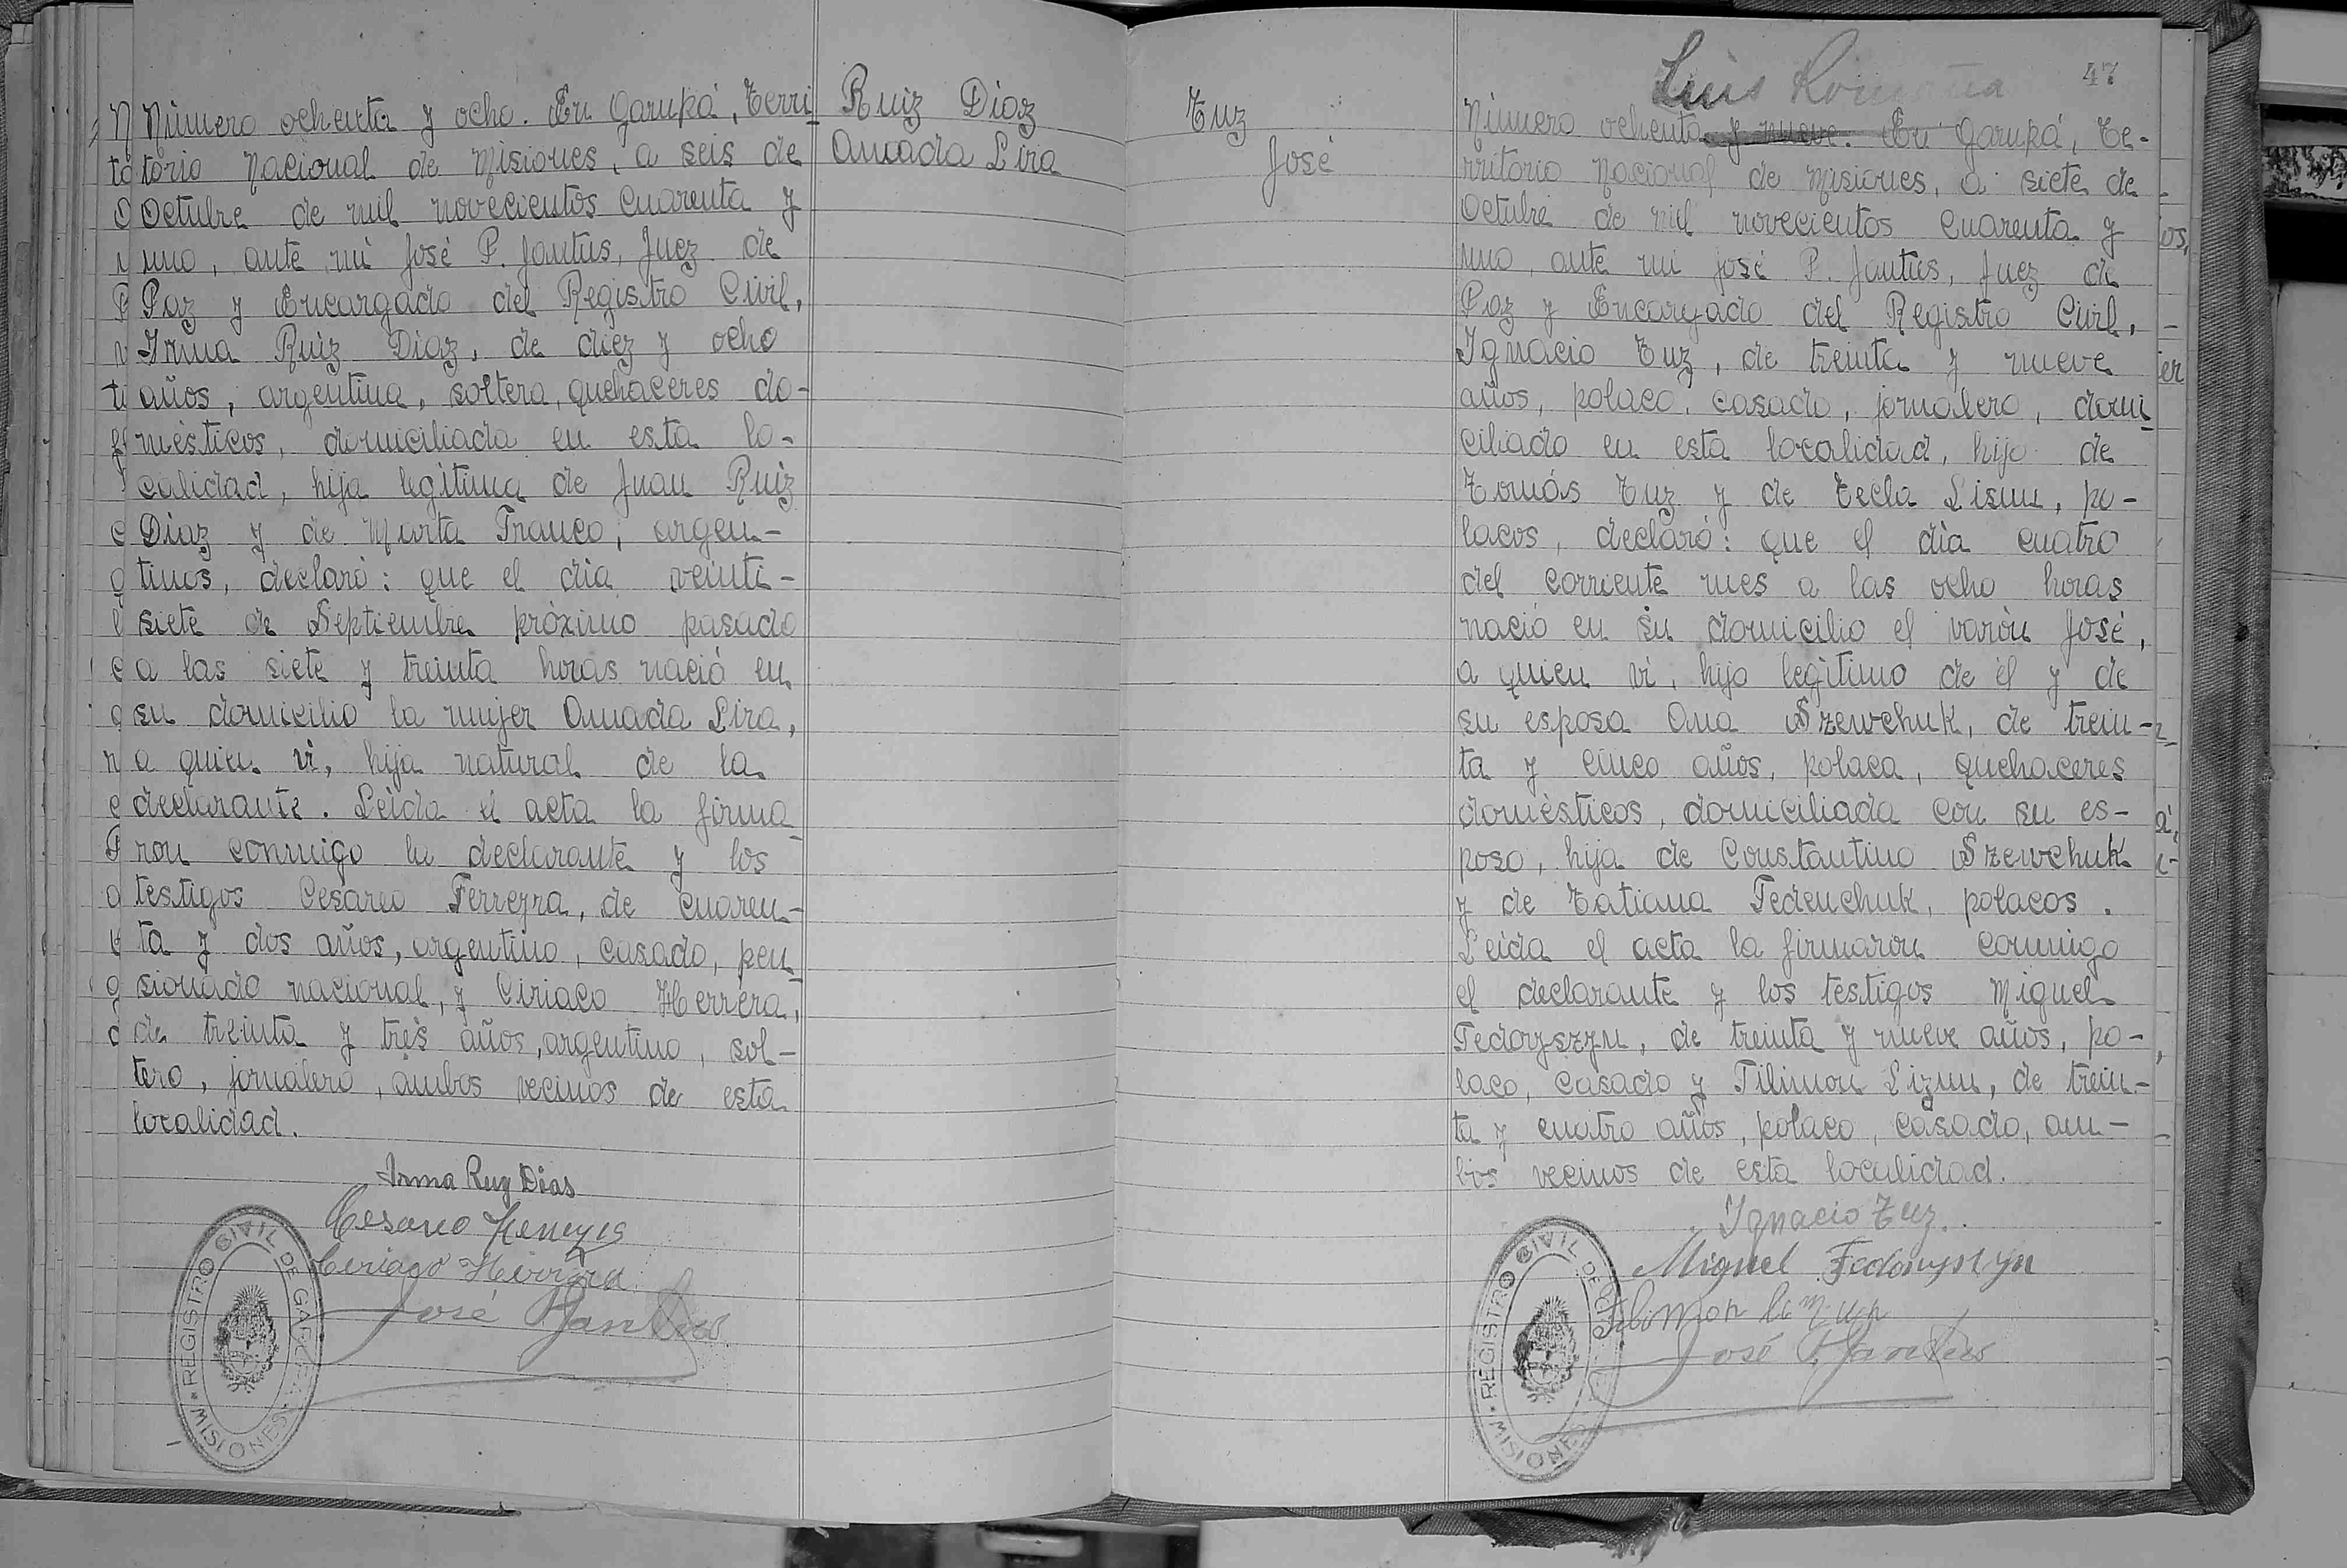 Número ochenta y ocho. En Garupá, Terri
torio Nacional de Misiones, a seis de
Octubre de mil novecientos cuarenta y
uno, ante mi José P. Jantus, Juez de
Paz y Encargado del Registro Civil,
Irma Ruiz Diaz, de diez y ocho
años, argentina, soltera, quehaceres do-
mésticos, domiciliada en esta lo-
calidad, hija legítima de Juan Ruiz
Diaz y de Marta Franco, argen-
tinos, declaró: que el día veinti-
siete de Septiembre próximo pasado
a las siete y treinta horas nació en
su domicilio la mujer Amada Lira,
a quien vi, hija natural de la
declarante. Leída el acta la firma
ron conmigo la declarante y los
testigos Cesareo Ferreyra, de cuaren-
ta y dos años, argentino, casado, pen
sionado nacional, y Ciriaco Herrera,
de treinta y tres años, argentino, sol-
tero, jornalero, ambos vecinos de esta
localidad.
Irma Ruy Dias
Cesareo Ferreyra
Ciriaco Herrera
José P Jantus
REGISTRO CIVIL DE GARUPÁ
MISIONES
Ruiz Diaz
Amada Lira
Tuz
José
Luis
47
Número ochenta y nueve. En Garupá, Te-
rritorio Nacional de Misiones, a siete de
Octubre de mil novecientos cuarenta y
uno, ante mi José P. Jantus, Juez de
Paz y Encargado del Registro Civil,
Ignacio Tuz, de treinta y nueve
años, polaco, casado, jornalero, domi
ciliado en esta localidad, hijo de
Tomás Tuz y de Tecla Lisun, po-
lacos, declaró: que el día cuatro
del corriente mes a las ocho horas
nació en su domicilio el varón José,
a quien vi, hijo legítimo de él y de
su esposa Ana Szewchuk, de trein-
ta y cinco años, polaca, quehaceres
domésticos, domiciliada con su es-
poso, hija de Constantino Szewchuk
y de Tatiana Fedenchuk, polacos.
Leída el acta la firmaron conmigo
el declarante y los testigos Miguel
Fedoryszyn, de treinta y nueve años, po-
laco, casado y Filimon Lizun, de trein-
ta y cuatro años, polaco, casado, am-
bos vecinos de esta localidad.
Ignacio Tuz.
Miguel Fedoryszyn
Filimon
José P. Jantus
REGISTRO CIVIL DE
MISIONES